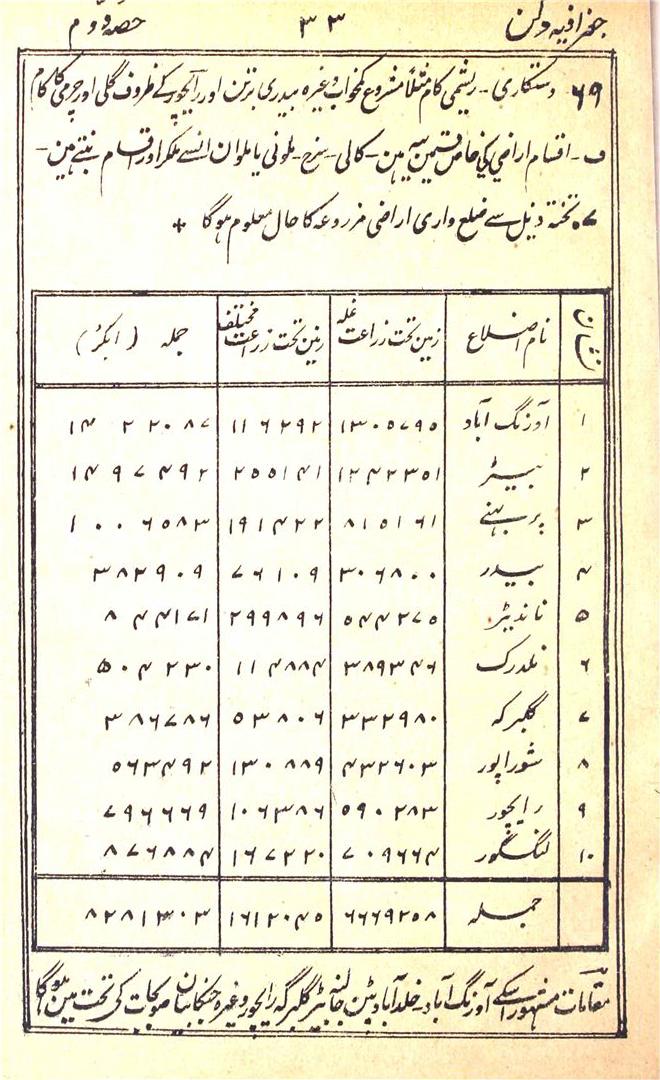 جغرافیہ دکن ۳۳ حصہ دوم
۶۹ دستکاری - ریشمی کام مثلاً مشروع کمخواب وغیرہ بیدری برتن اور رایچور کے ظروف گلی اور چرمی کا کام
ف - اقسام اراضی کی خاص قسمین یہ ہین - کالی - سرخ - ملونی یا ملوان انسے ملکر اور اقسام بنتے ہین -
۷۰ تختہ ذیل سے ضلع واری اراضی مزروعہ کا حال معلوم ہوگا +
نشان نام اضلاع زمین تحت زراعت غلہ زمین تحت زراعت مختلف جملہ ( ایکڑ )
۱ اورنگ آباد ۱۳۰۵۷۹۵ ۱۱۶۲۹۲ ۱۴۲۲۰۸۷
۲ بیڑ ۱۲۴۲۳۵۱ ۲۵۵۱۴۱ ۱۴۹۷۴۹۲
۳ پربہنے ۸۱۵۱۶۱ ۱۹۱۴۲۲ ۱۰۰۶۵۸۳
۴ بیدر ۳۰۶۸۰۰ ۷۶۱۰۹ ۳۸۲۹۰۹
۵ ناندیڑ ۵۴۴۲۷۵ ۲۹۹۸۹۶ ۸۴۴۱۷۱
۶ نلدرک ۳۸۹۳۴۶ ۱۱۴۸۸۴ ۵۰۴۲۳۰
۷ گلبرگہ ۳۳۲۹۸۰ ۵۳۸۰۶ ۳۸۶۷۸۶
۸ شوراپور ۴۳۲۶۰۳ ۱۳۰۸۸۹ ۵۶۳۴۹۲
۹ رایچور ۵۹۰۲۸۳ ۱۰۶۳۸۶ ۷۹۶۶۶۹
۱۰ لنگسگور ۷۰۹۶۶۴ ۱۶۷۲۲۰ ۸۷۶۸۸۴
جملہ ۶۶۶۹۲۵۸ ۱۶۱۲۰۴۵ ۸۲۸۱۳۰۳
مقامات مشہور اسکے اورنگ آباد - خلدآباد پٹن جالنہ بیڑ گلبرگہ رایچور وغیرہ جنکا بیان صوبجات کی تحت مین ہوگا